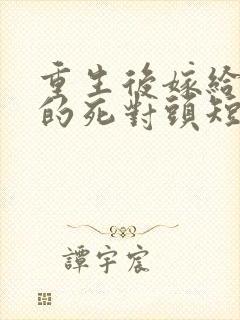 重生後嫁給
的死對頭短
譚宇宸